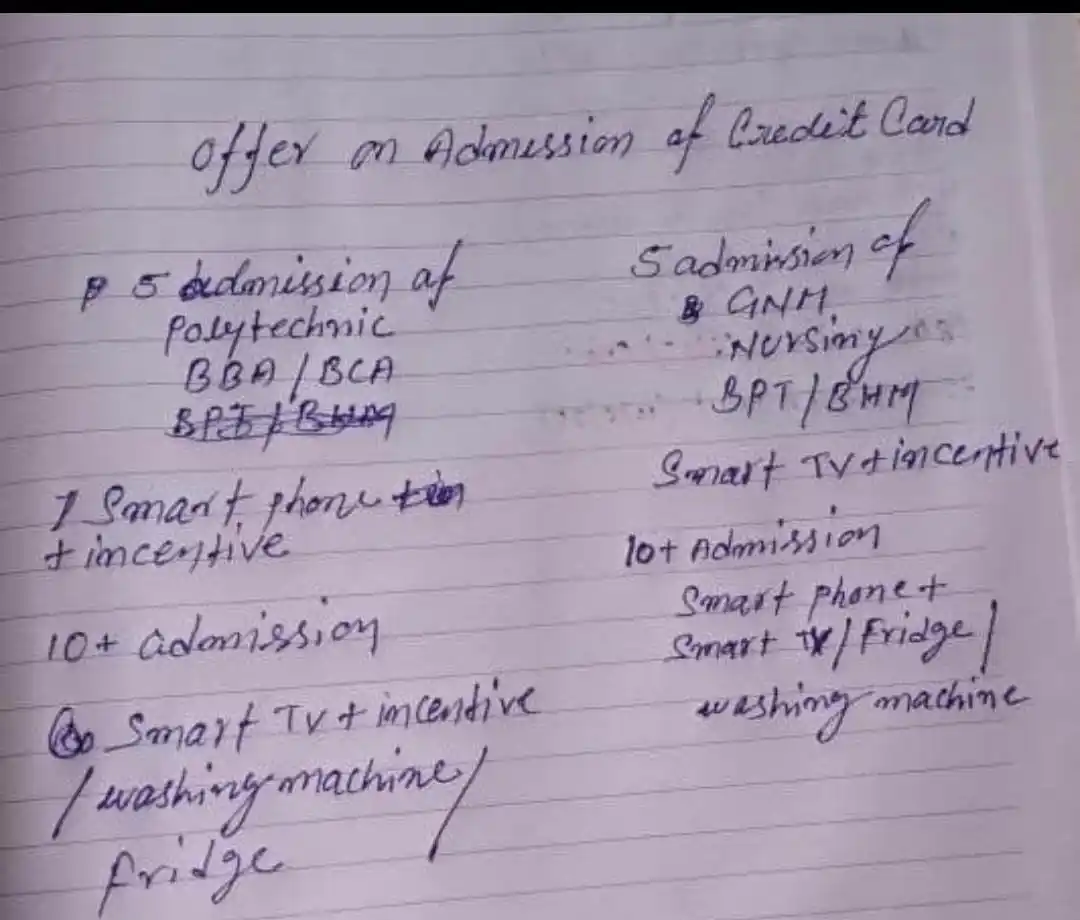 Offer on Admission of Credit Card
5 admission of
Polytechnic
BBA / BCA
BPT / BHM
1 Smart phone + in
+ incentive
10+ admission
Smart TV + incentive
/ washing machine /
fridge
5 admission of
GNM,
Nursing
BPT / BHM
Smart TV + incentive
10+ Admission
Smart phone +
Smart TV / Fridge /
washing machine